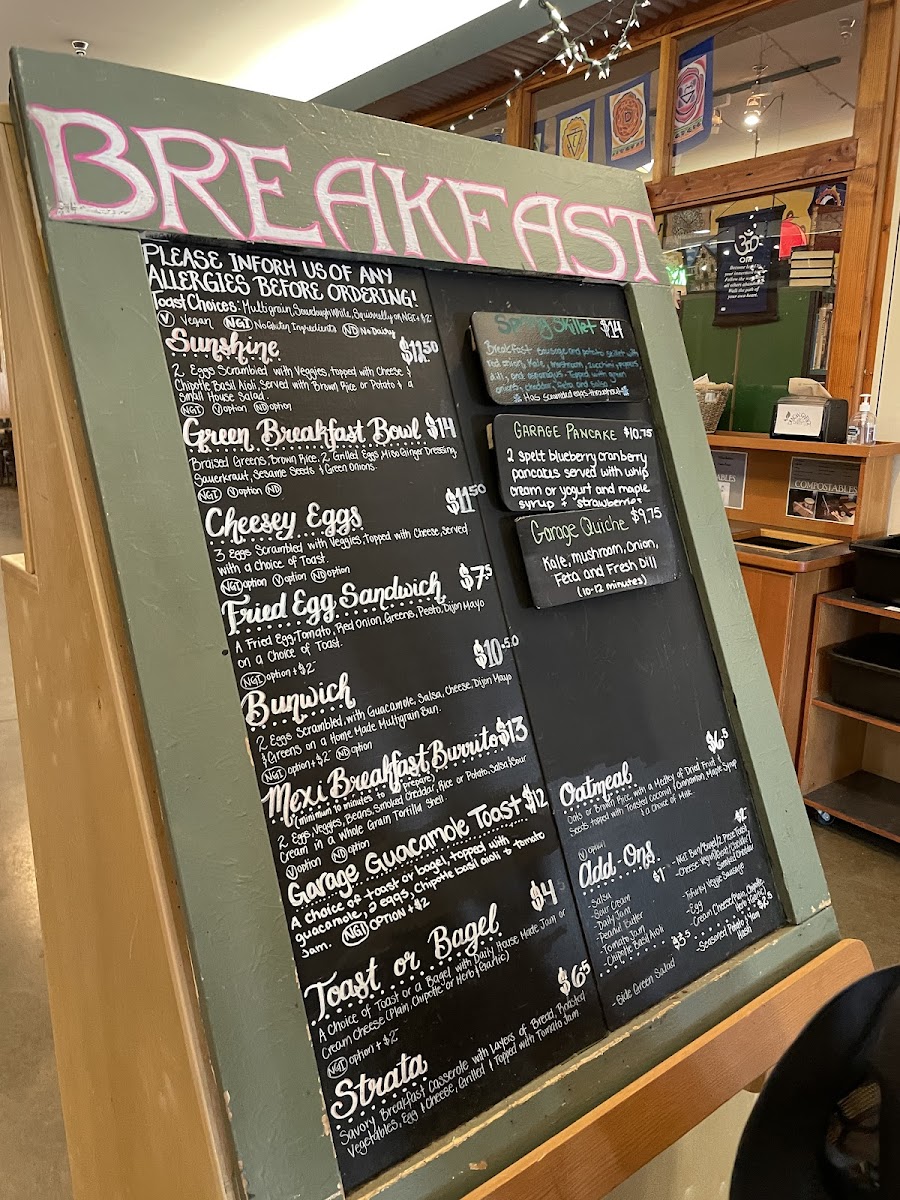 BREAKFAST
PLEASE INFORM US OF ANY
ALLERGIES BEFORE ORDERING!
Toast Choices: Multigrain, Sourdough White, Squirrelly or NGI + $2-
V Vegan NGI No Gluten Ingredients ND No Dairy
Sunshine $11.50
2 Eggs Scrambled with Veggies, topped with Cheese &
Chipotle Basil Aioli, Served with Brown Rice or Potato & a
Small House Salad.
NGI V option ND option
Green Breakfast Bowl $14
Braised Greens, Brown Rice, 2 Grilled Eggs Miso Ginger Dressing,
Sauerkraut, Sesame Seeds & Green Onions.
NGI V option ND
Cheesey Eggs $11.50
3 Eggs Scrambled with Veggies, Topped with Cheese, Served
with a Choice of Toast.
NGI option V option ND option
Fried Egg Sandwich $7.5
A Fried Egg, Tomato, Red Onion, Greens, Pesto, Dijon Mayo
on a Choice of Toast.
NGI option + $2-
Bunwich $10.50
2 Eggs Scrambled, with Guacamole, Salsa, Cheese, Dijon Mayo
& Greens on a Home Made Multigrain Bun.
NGI option + $2- ND option
Mexi Breakfast Burrito $13
(minimum 10 minutes to prepare)
2 Eggs, Veggies, Beans, Smoked Cheddar, Rice or Potato, Salsa & Sour
Cream in a Whole Grain Tortilla Shell.
V option ND option
Garage Guacamole Toast $12
A choice of toast or bagel topped with
guacamole, 2 eggs, Chipotle basil aioli & tomato
jam. NGI OPTION + $2
Toast or Bagel $4
A Choice of Toast or a Bagel with Daily House Made Jam or
Cream Cheese (Plain, Chipotle or Herb & Garlic)
NGI option + $2-
Strata $6.5
Savory Breakfast Casserole with Layers of Bread, Roasted
Vegetables, Egg & Cheese, Grilled & Topped with Tomato Jam
Spring Skillet $14
Breakfast sausage and potato skillet with
red onion, kale, mushroom, zucchini, peppers,
dill, and asparagus. Topped with green
onions, cheddar, feta and salsa
Has scrambled eggs throughout
GARAGE PANCAKE $10.75
2 spelt blueberry cranberry
pancakes served with whip
cream or yogurt and maple
syrup & strawberries
Garage Quiche $9.75
Kale, mushroom, Onion,
Feta and Fresh Dill
(10-12 minutes)
Oatmeal $6.5
Oats or Brown Rice, with a Medley of Dried Fruit &
Seeds, topped with Toasted Coconut & Cinnamon Maple Syrup
& a Choice of Milk.
V option
Add-Ons
$1-
- Salsa
- Sour Cream
- Daily Jam
- Peanut Butter
- Tomato Jam
- Chipotle Basil Aioli
$3.5
- Side Green Salad
$2-
- NGI Bun/Bagel/2 Piece Toast
- Cheese
Smoked Cheddar
- Tofurky Veggie Sausage
- Egg
- Cream Cheese (Plain, Chipotle,
Herb & Garlic)
$2.5
- Seasoned Potato & Yam
Hash
OM
COMPOSTABLES